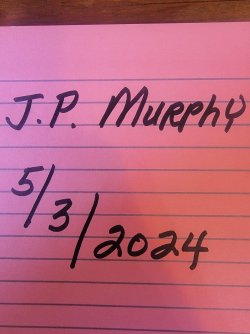 J.P. Murphy
5/3/2024